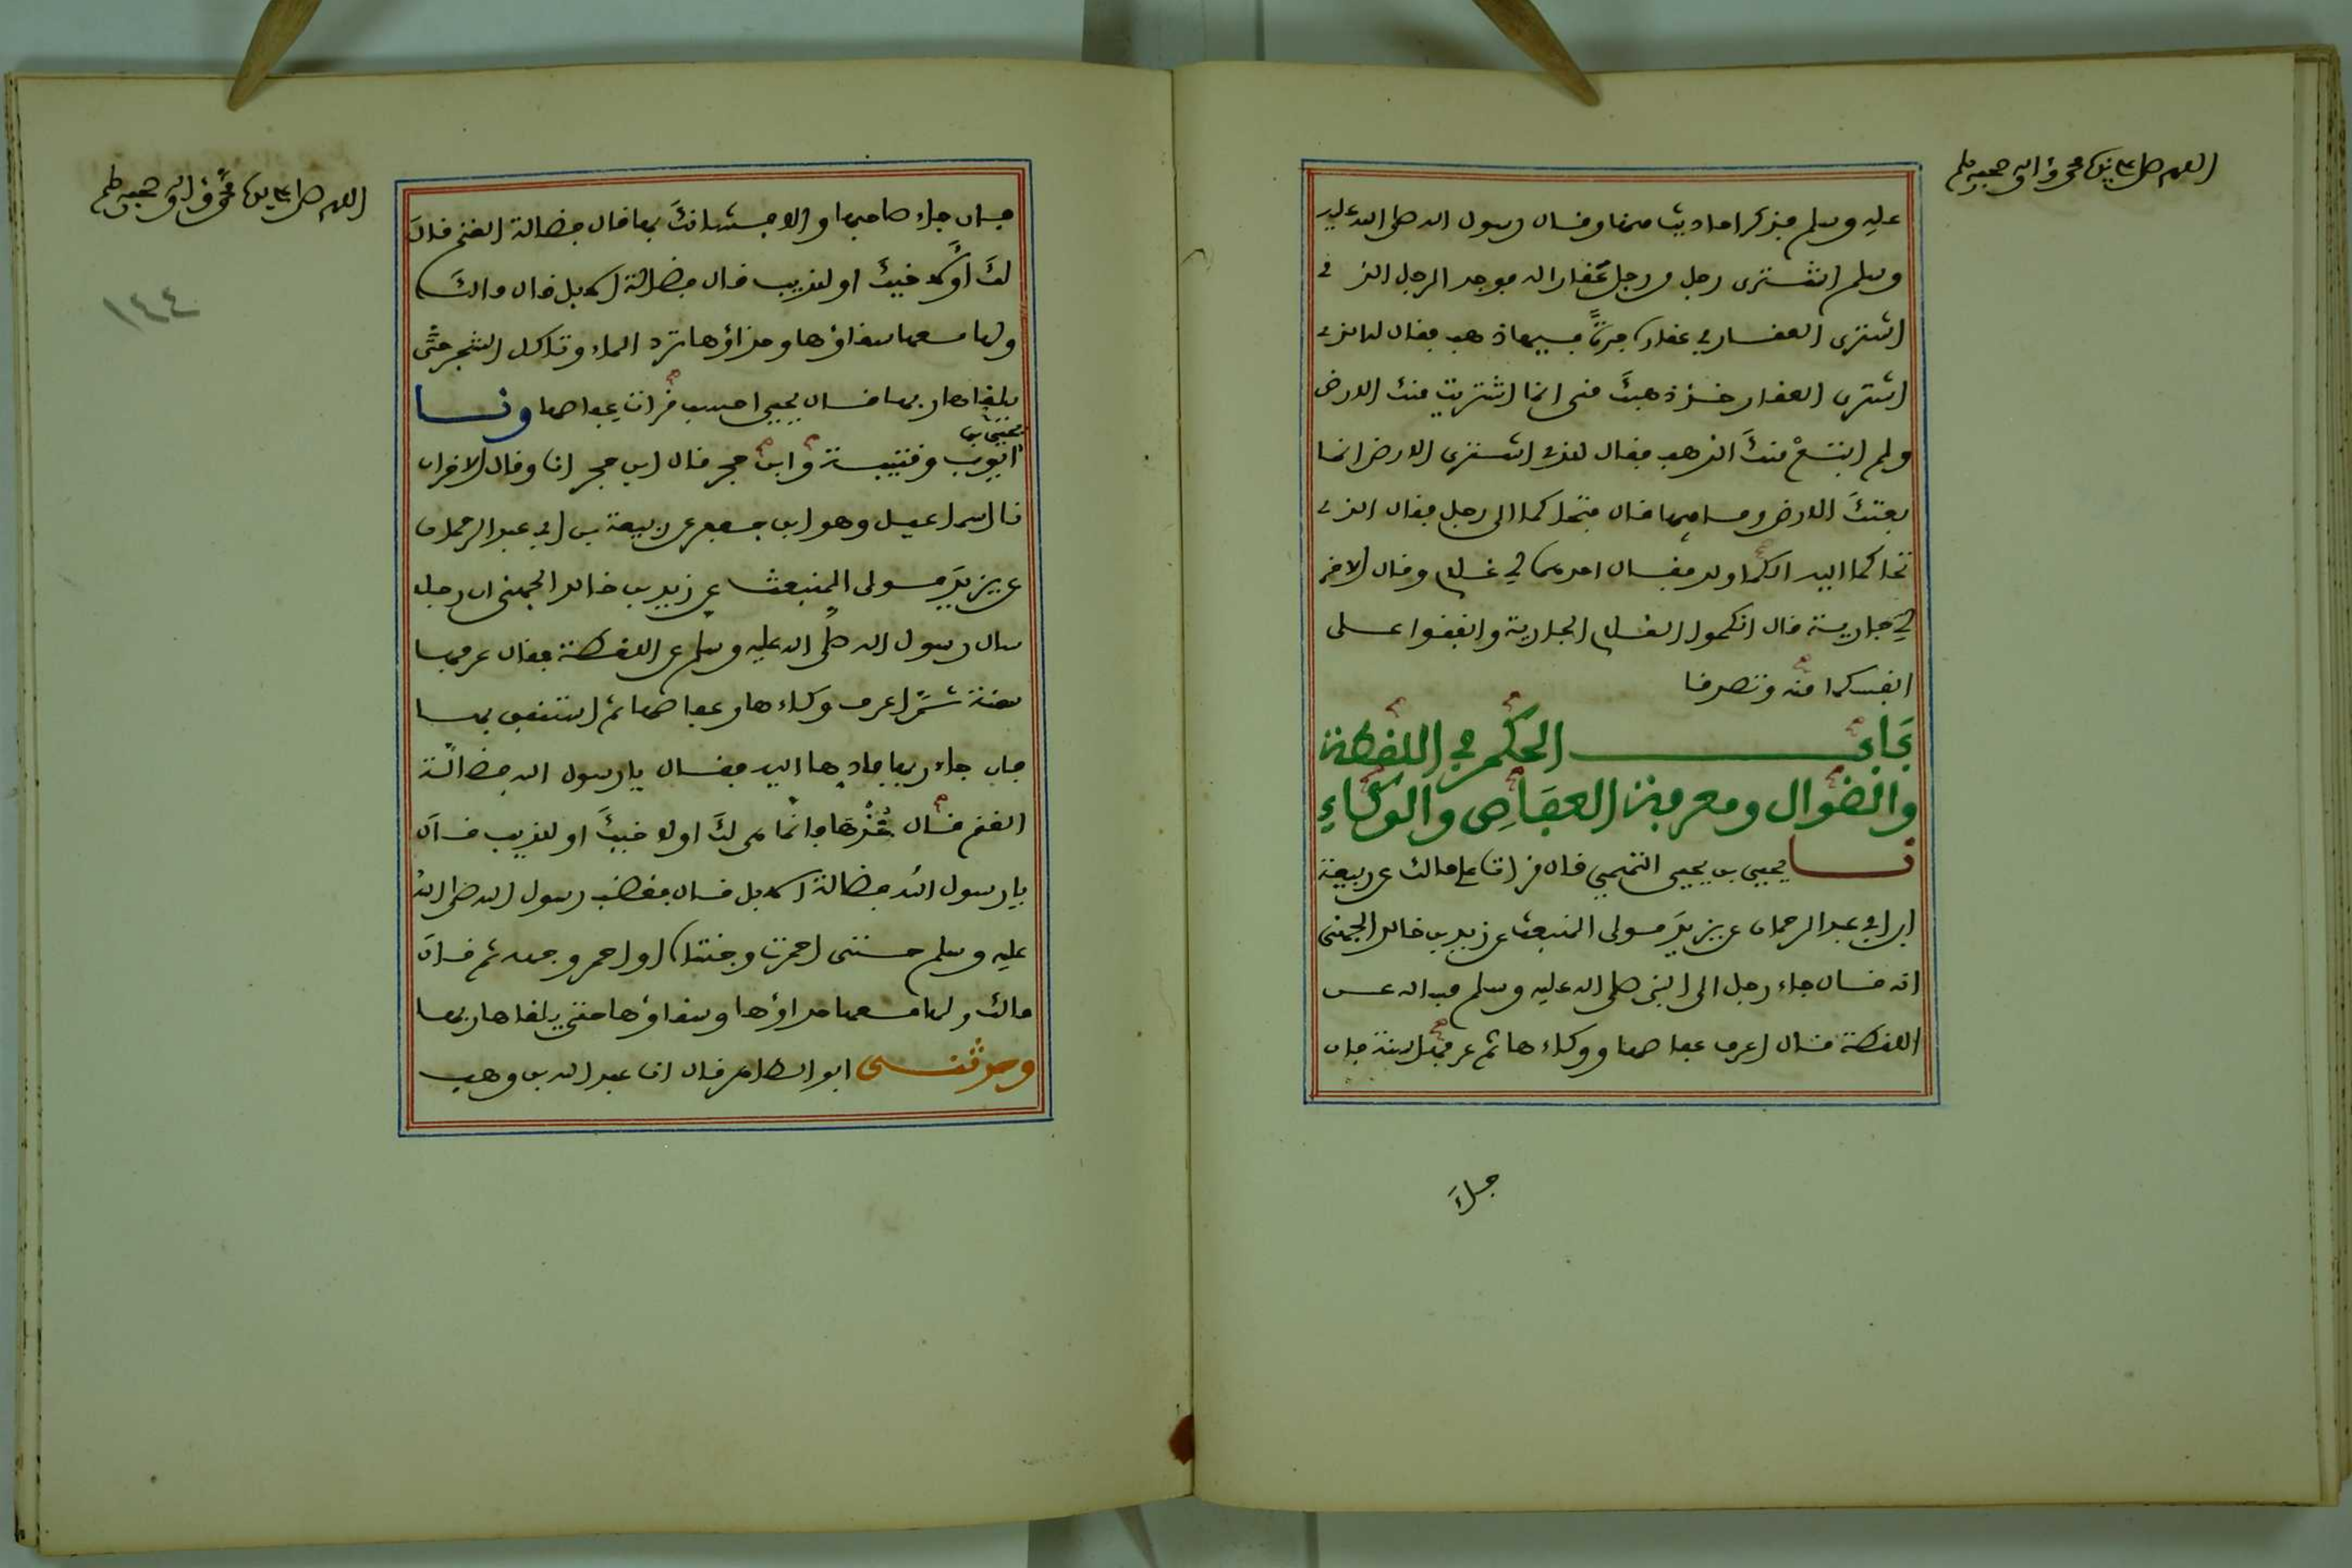 اللهم صل على سيدنا محمد وآله وصحبه وسلم
عليه وسلم فذكر احاديث منها وقال رسول الله صلى الله عليه
وسلم اشترى رجل من رجل عقارا له فوجد الرجل الذي
اشترى العقار في عقاره جرة فيها ذهب فقال له الذي
اشترى العقار خذ ذهبك مني انما اشتريت منك الارض
ولم ابتع منك الذهب فقال الذي اشترى الارض انما
بعتك الارض وما فيها قال فتحاكما الى رجل فقال الذي
تحاكما اليه الكما ولد فقال احدهما لي غلام وقال الاخر
لي جارية قال انكحوا الغلام الجارية وانفقوا على
انفسكما منه وتصدقا
باب الحكم في اللقطة
والضوال ومعرفة العفاص والوكاء
نا يحيى بن يحيى التميمي قال قرات على مالك عن ربيعة
ابن ابي عبد الرحمان عن يزيد مولى المنبعث عن زيد بن خالد الجهني
انه قال جاء رجل الى النبي صلى الله عليه وسلم فساله عن
اللقطة فقال اعرف عفاصها ووكاءها ثم عرفها سنة فان
جاء
اللهم صل على سيدنا محمد وآله وصحبه وسلم
١٤٤
فان جاء صاحبها والا فشانك بها قال فضالة الغنم قال
لك او لاخيك او للذيب قال فضالة الابل قال مالك
ولها معها سقاؤها وحذاؤها ترد الماء وتاكل الشجر حتى
يلقاها ربها قال يحيى احسب قرات عفاصها ونا
يحيى بن
ايوب وقتيبة وابن حجر قال ابن حجر انا وقال الاخران
نا اسماعيل وهو ابن جعفر عن ربيعة بن ابي عبد الرحمان
عن يزيد مولى المنبعث عن زيد بن خالد الجهني ان رجلا
سال رسول الله صلى الله عليه وسلم عن اللقطة فقال عرفها
سنة ثم اعرف وكاءها وعفاصها ثم استنفق بها
فان جاء ربها فادها اليه فقال يا رسول الله فضالة
الغنم قال خذها فانما هي لك او لاخيك او للذيب قال
يا رسول الله فضالة الابل قال فغضب رسول الله صلى الله
عليه وسلم حتى احمرت وجنتاه او احمر وجهه ثم قال
مالك ولها معها حذاؤها وسقاؤها حتى يلقاها ربها
وحدثني ابو الطاهر قال انا عبد الله بن وهب